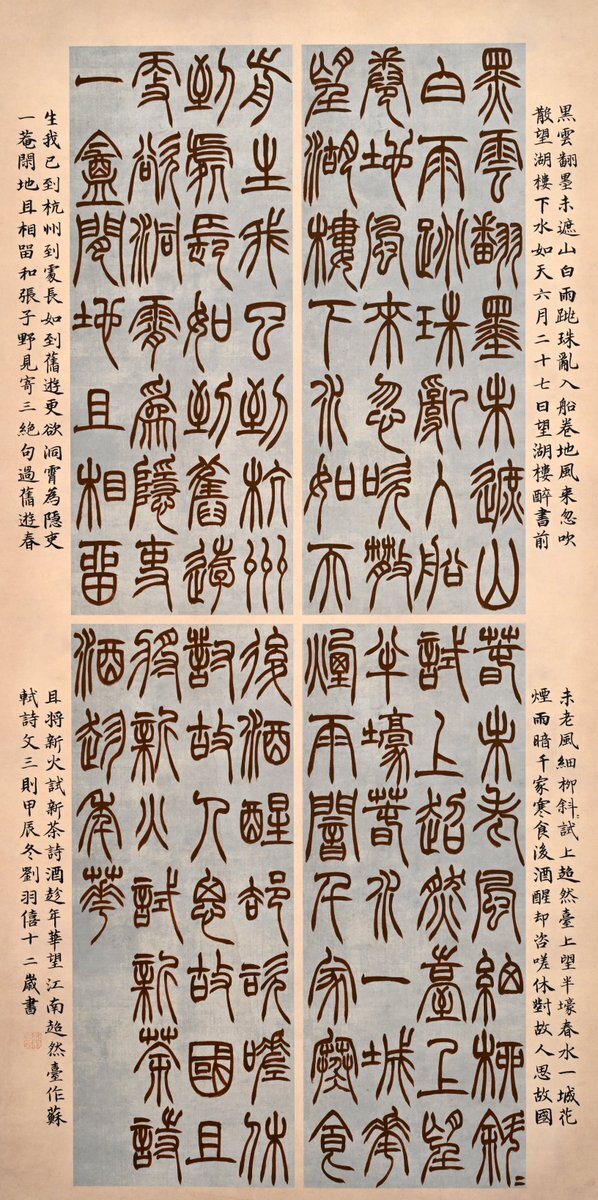 黑雲翻墨未遮山白雨跳珠亂入船卷地風来忽吹
散望湖樓下水如天六月二十七日望湖樓醉書前
黑雲翻墨未遮山
白雨跳珠亂入船
卷地風來忽吹散
望湖樓下水如天
前生我已到杭州
到處長如到舊遊
更欲洞霄為隱吏
一盦閑地且相留
生我已到杭州到處長如到舊遊更欲洞霄為隱吏
一菴閑地且相留和張子野見寄三絕句過舊遊春
未老風細柳斜=試上超然臺上望半壕春水一城花
煙雨暗千家寒食後酒醒却咨嗟休對故人思故國
春未老風細柳斜=
試上超然臺上望
半壕春水一城花
煙雨闇千家寒食
後酒醒却咨嗟休
對故人思故國且
將新火試新茶詩
酒趁年華
且將新火試新茶詩酒趁年華望江南超然臺作蘇
軾詩文三則甲辰冬劉羽僖十二歲書